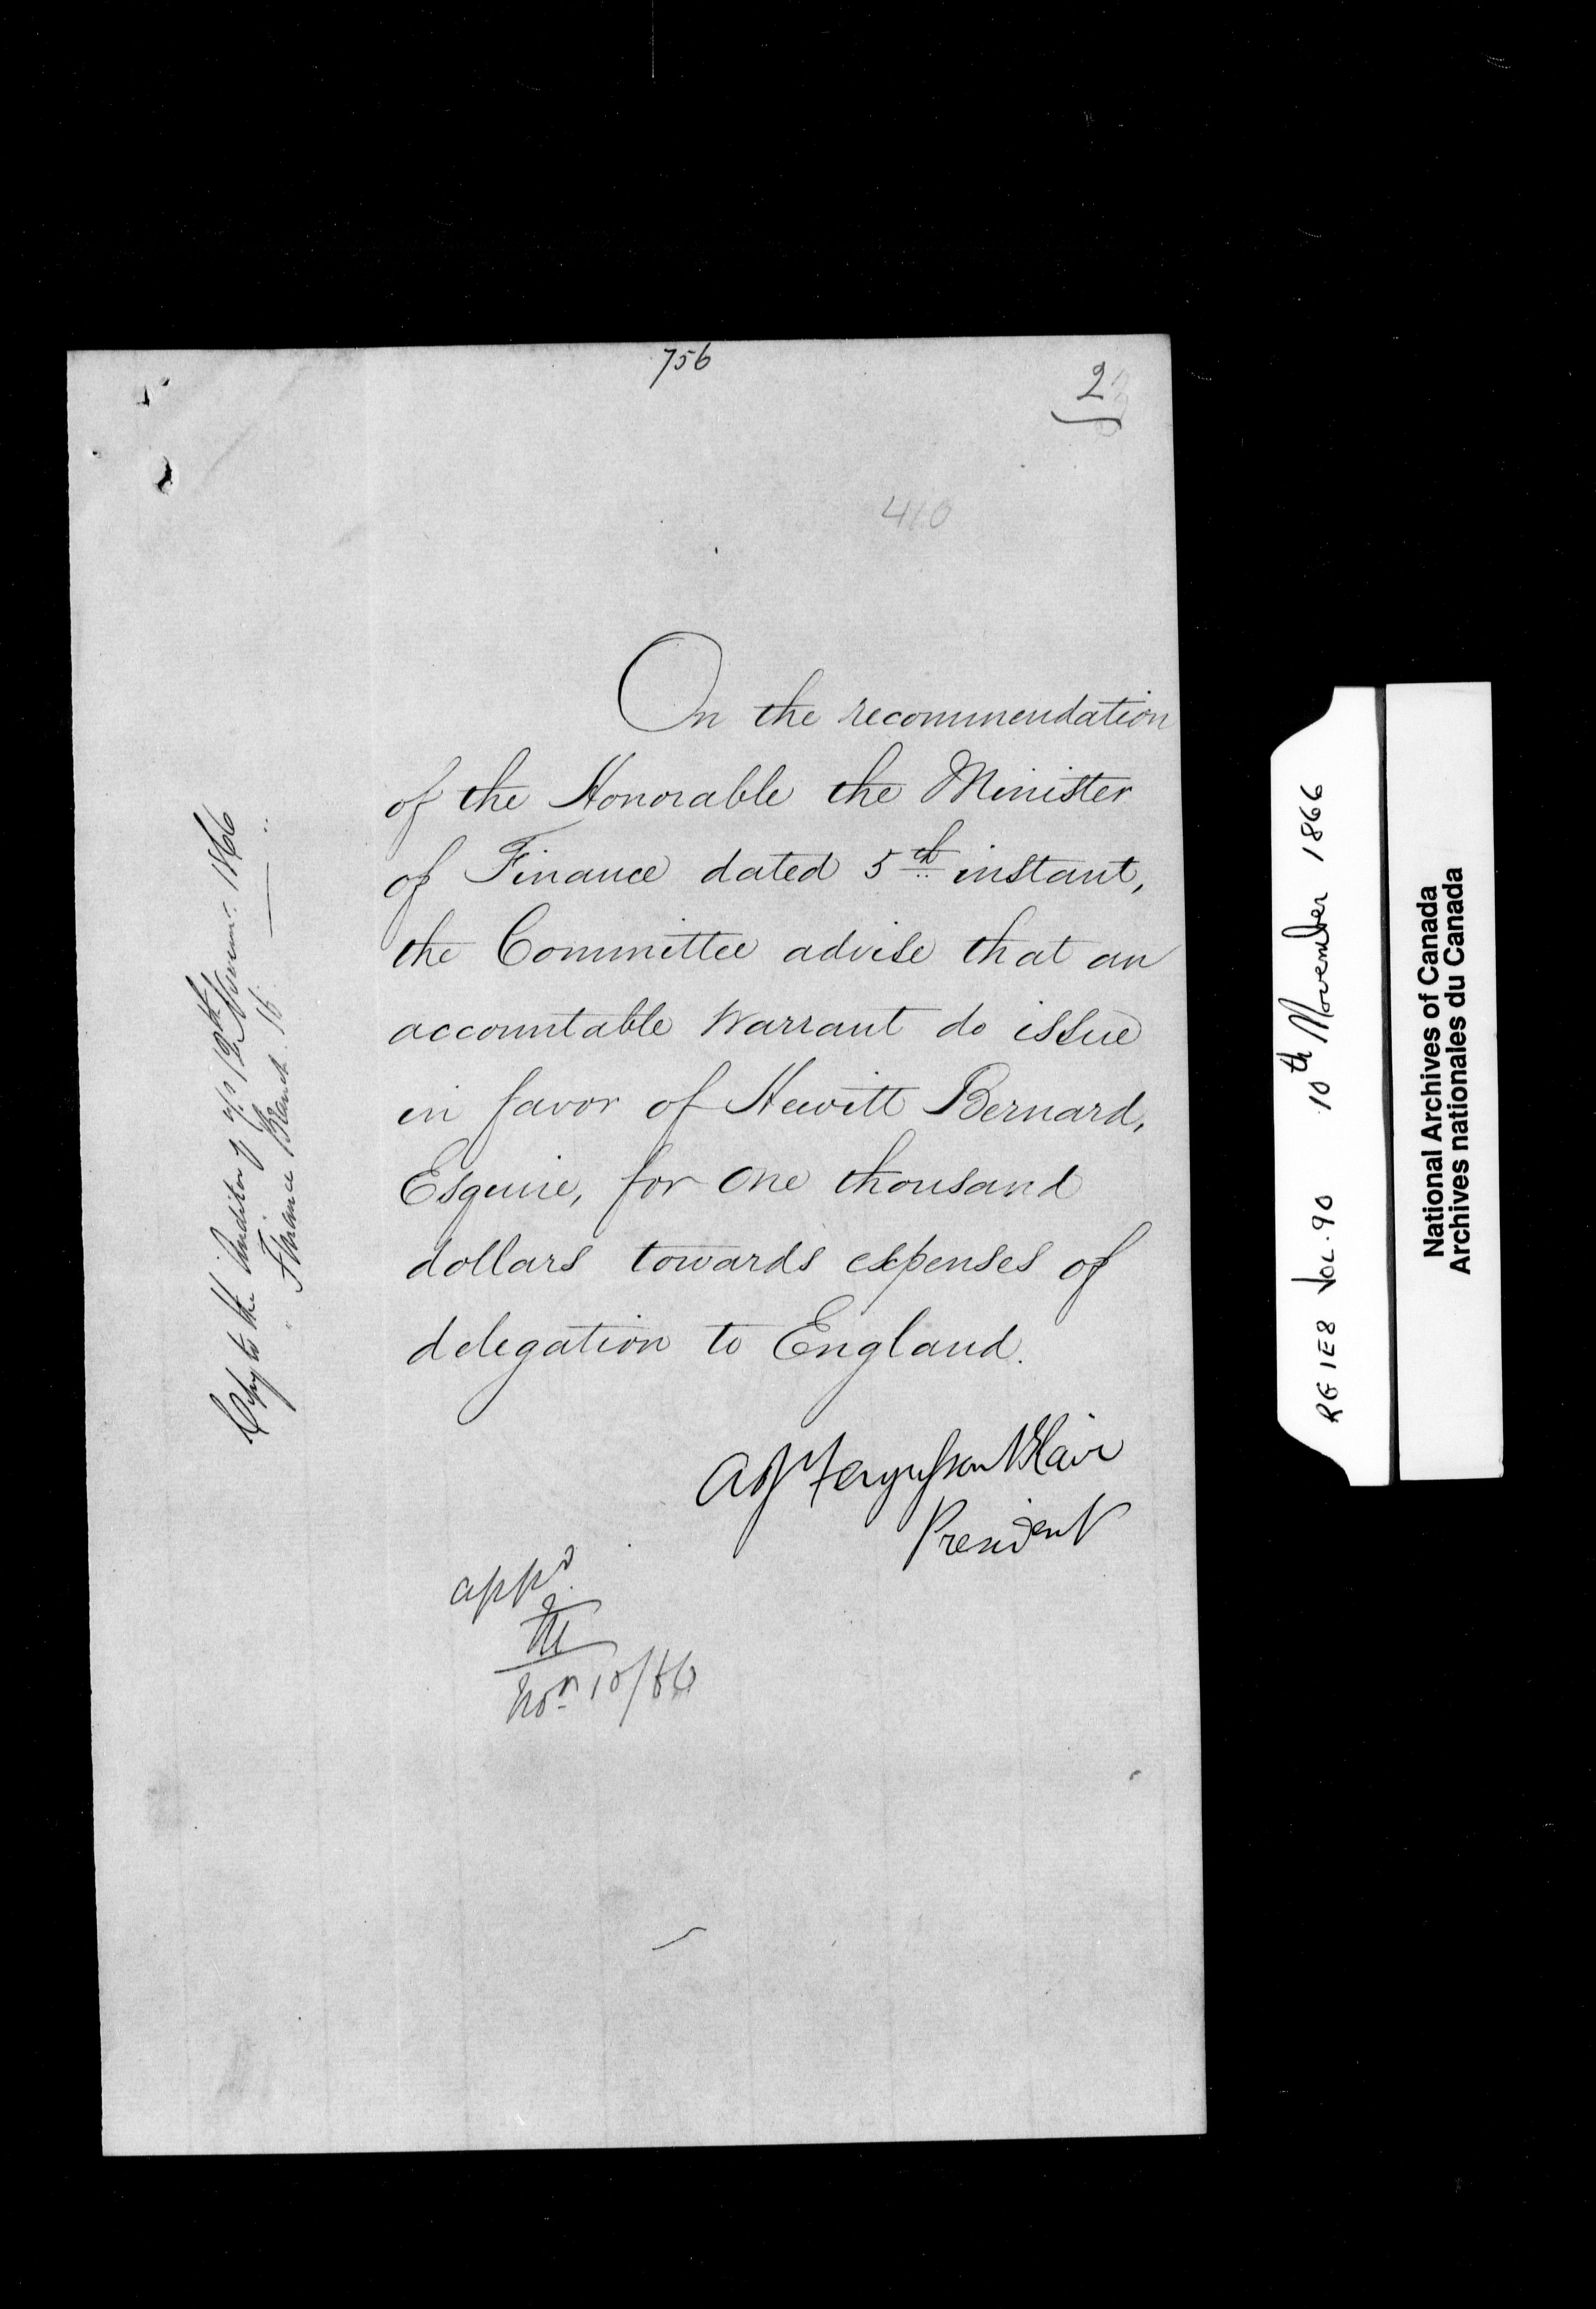 756
2
410
On the recommendation
of the Honorable the Minister
of Finance dated 5th instant,
the Committee advise that an
accountable Warrant do issue
in favor of Hewitt Bernard,
Esquire, for One thousand
dollars towards expenses of
delegation to England.
A J Fergusson Blair
President
appd
Nov 10/66
Copy to the Auditor 12th Novemr. 1866
" Finance Branch 16
RG 1 E8 VOL. 90 10th November 1866
National Archives of Canada
Archives nationales du Canada